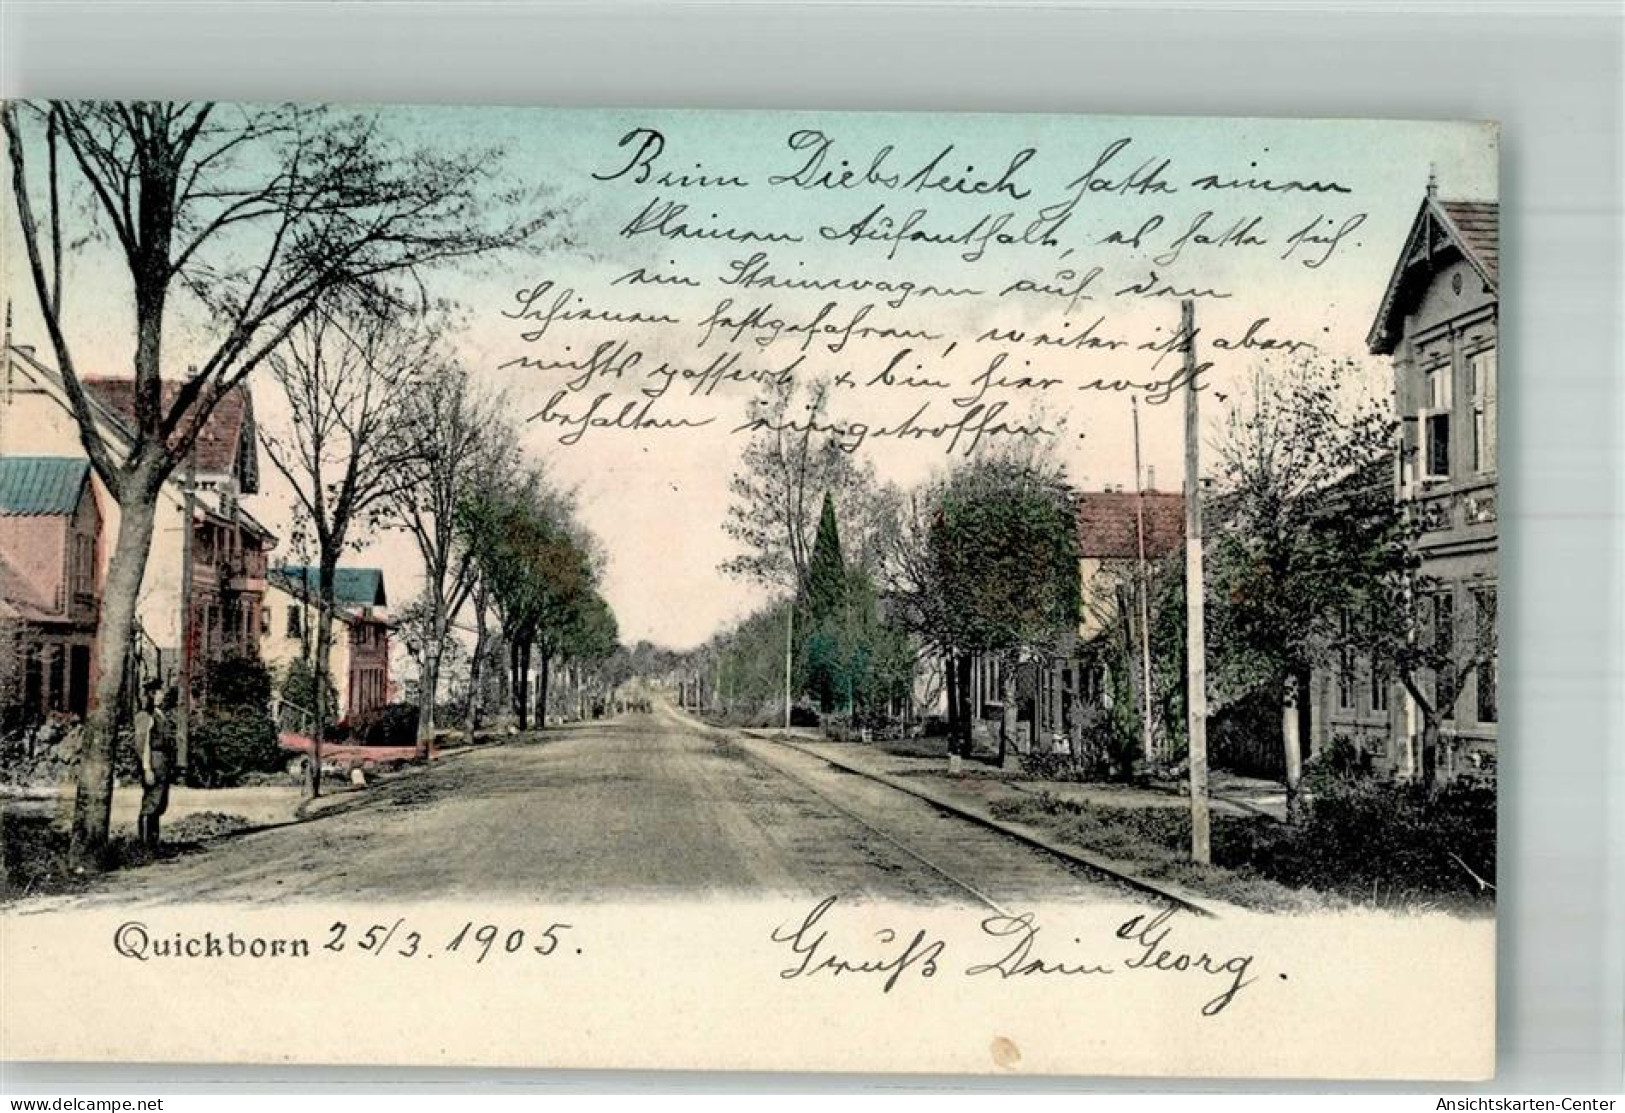 Beim Diebsteich hatte einen
kleinen Aufenthalt, es hatte sich
ein Steinwagen auf den
Schienen festgefahren, weiter ist aber
nichts passiert & bin hier wohl
behalten eingetroffen.
Quickborn 25/3. 1905.
Gruß Dein Georg.
www.delcampe.net
Ansichtskarten-Center